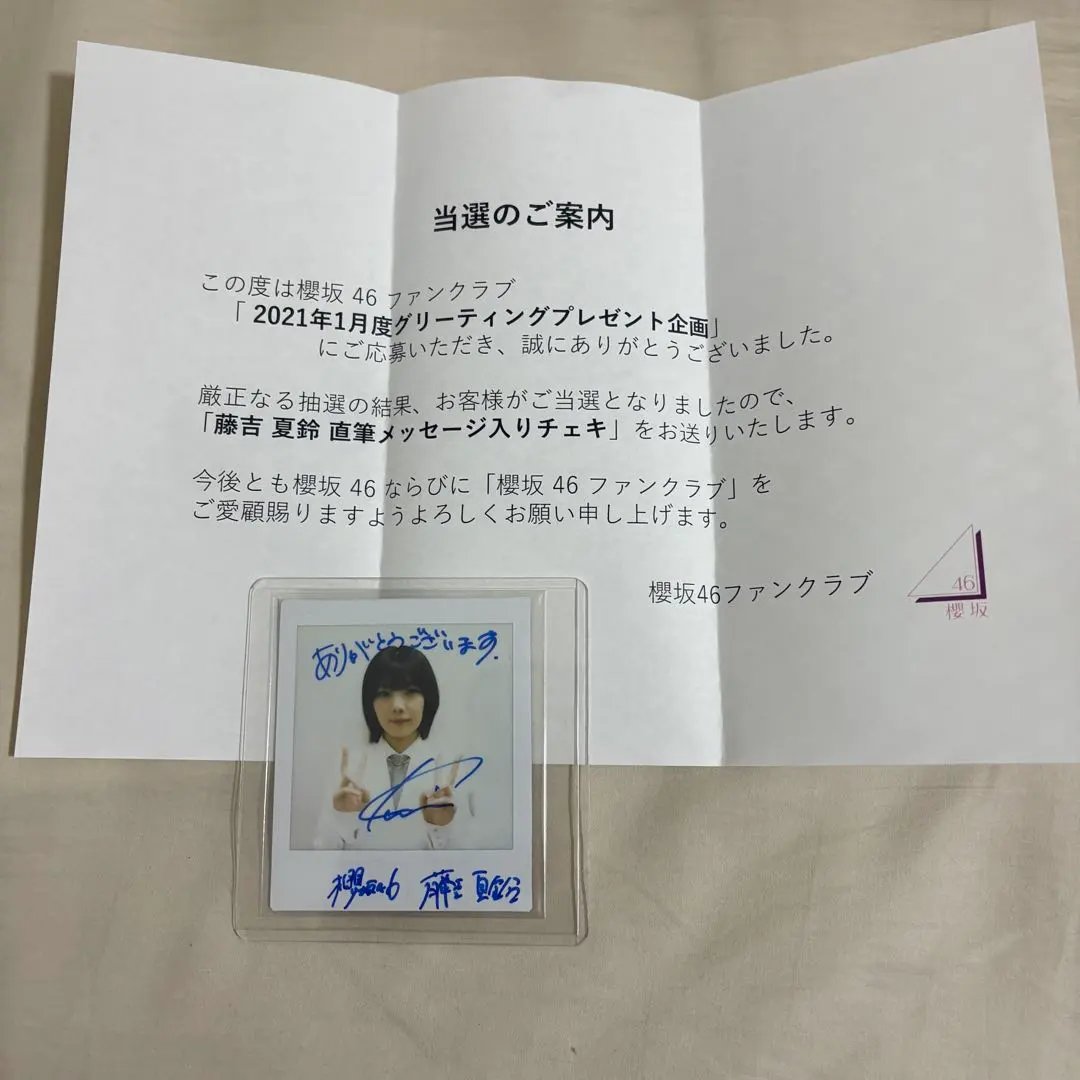 当選のご案内
この度は櫻坂 46 ファンクラブ
「 2021年1月度グリーティングプレゼント企画」
にご応募いただき、誠にありがとうございました。
厳正なる抽選の結果、お客様がご当選となりましたので、
「藤吉 夏鈴 直筆メッセージ入りチェキ」をお送りいたします。
今後とも櫻坂 46 ならびに「櫻坂 46 ファンクラブ」を
ご愛顧賜りますようよろしくお願い申し上げます。
櫻坂46ファンクラブ
46
櫻坂
ありがとうございます.
櫻坂46 藤吉 夏鈴